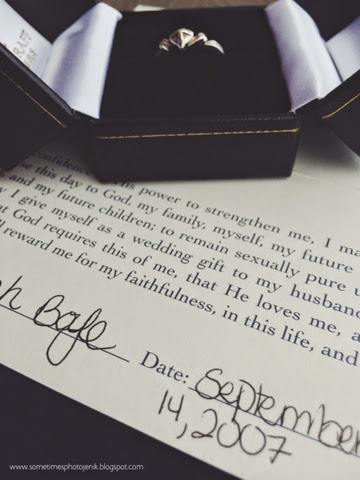 confidence in His power to strengthen me, I ma
this day to God, my family, myself, my future
and my future children; to remain sexually pure u
I give myself as a wedding gift to my husband
at God requires this of me, that He loves me, a
ll reward me for my faithfulness, in this life, and
Date: September
14, 2007
www.sometimesphotojenik.blogspot.com